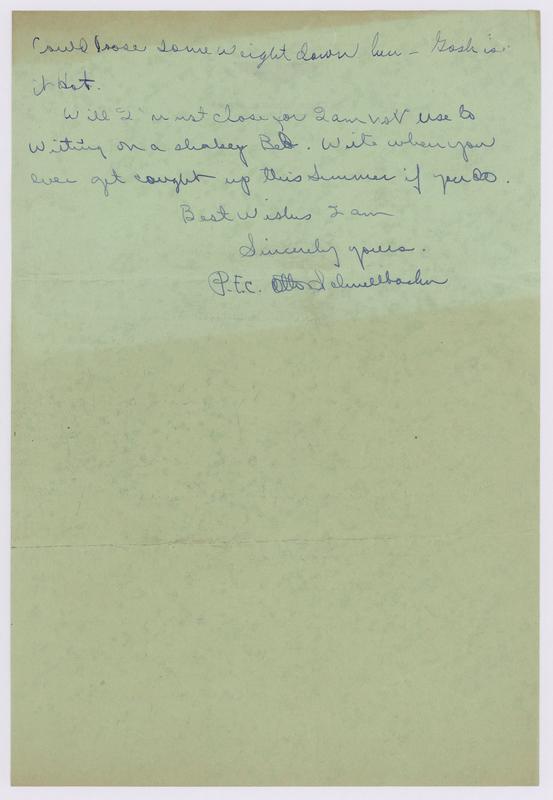 Could loose some weight down here - Gosh is
it Hot.
Will I must close for I am not use to
writting on a shakey Bed. Write when you
ever get cought up this Summer if you do.
Best Wishes I am
Sincerely yours.
P.F.C. Otto Schnellbacher